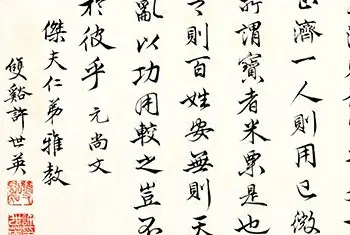 止濟一人則用已微
所謂寶者米粟是也
則百姓安無則天
亂以功用較之豈不
於彼乎 元尚文
傑夫仁弟雅教
雙谿許世英